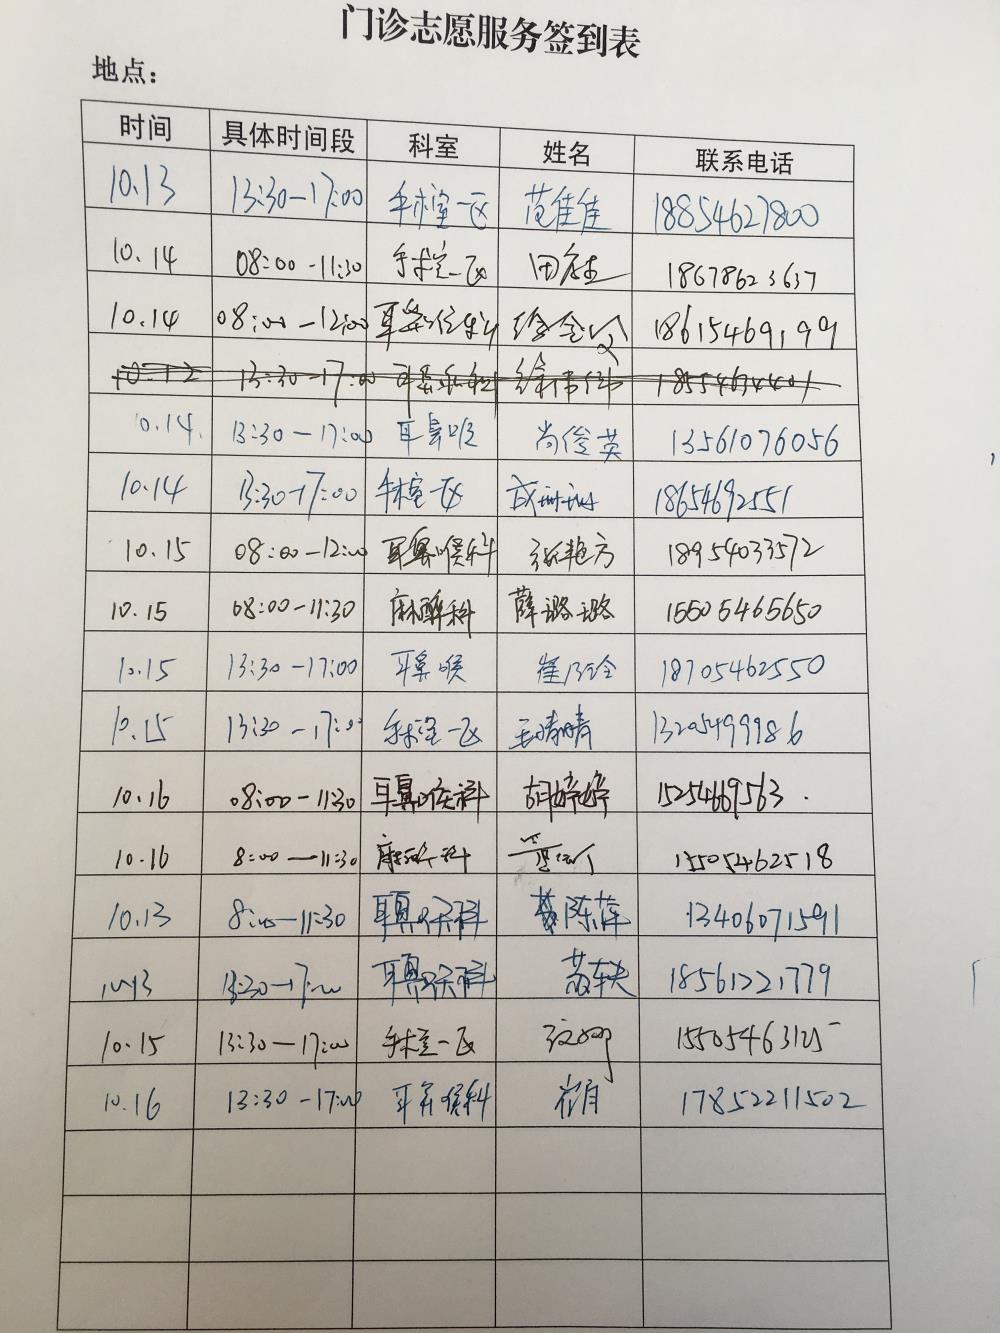 门诊志愿服务签到表
地点：
时间 具体时间段 科室 姓名 联系电话
10.13 13:30—17:00 手术室一区 范佳佳 18854627800
10.14 08:00-11:30 手术室一区 18678623637
10.14 08:00-12:00 18615469199
10.12 13:30-17:00 18554634401
10.14. 13:30-17:00 耳鼻喉 尚俊英 13561076056
10.14 13:30-17:00 手术室一区 成珊珊 18654692551
10.15 08:00-12:00 耳鼻喉科 张艳方 18954033572
10.15 08:00-11:30 麻醉科 薛璐璐 15505465650
10.15 13:30-17:00 耳鼻喉 崔乃玲 18705462550
10.15 13:30-17:00 手术室一区 王晴晴 13205499986
10.16 08:00-11:30 耳鼻喉科 胡婷婷 15254669563.
10.16 8:00—11:30 麻醉科 15505462518
10.13 8:00—11:30 耳鼻喉科 陈萍 13406071591
10.13 13:30-17:00 耳鼻喉科 苏轶 18561221779
10.15 13:30—17:00 手术室一区 15505463125
10.16 13:30-17:00 耳鼻喉科 崔月 17852211502